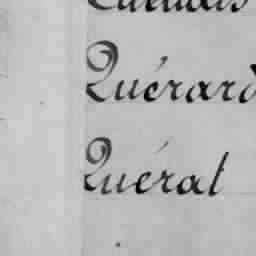 Quérard
Quérat